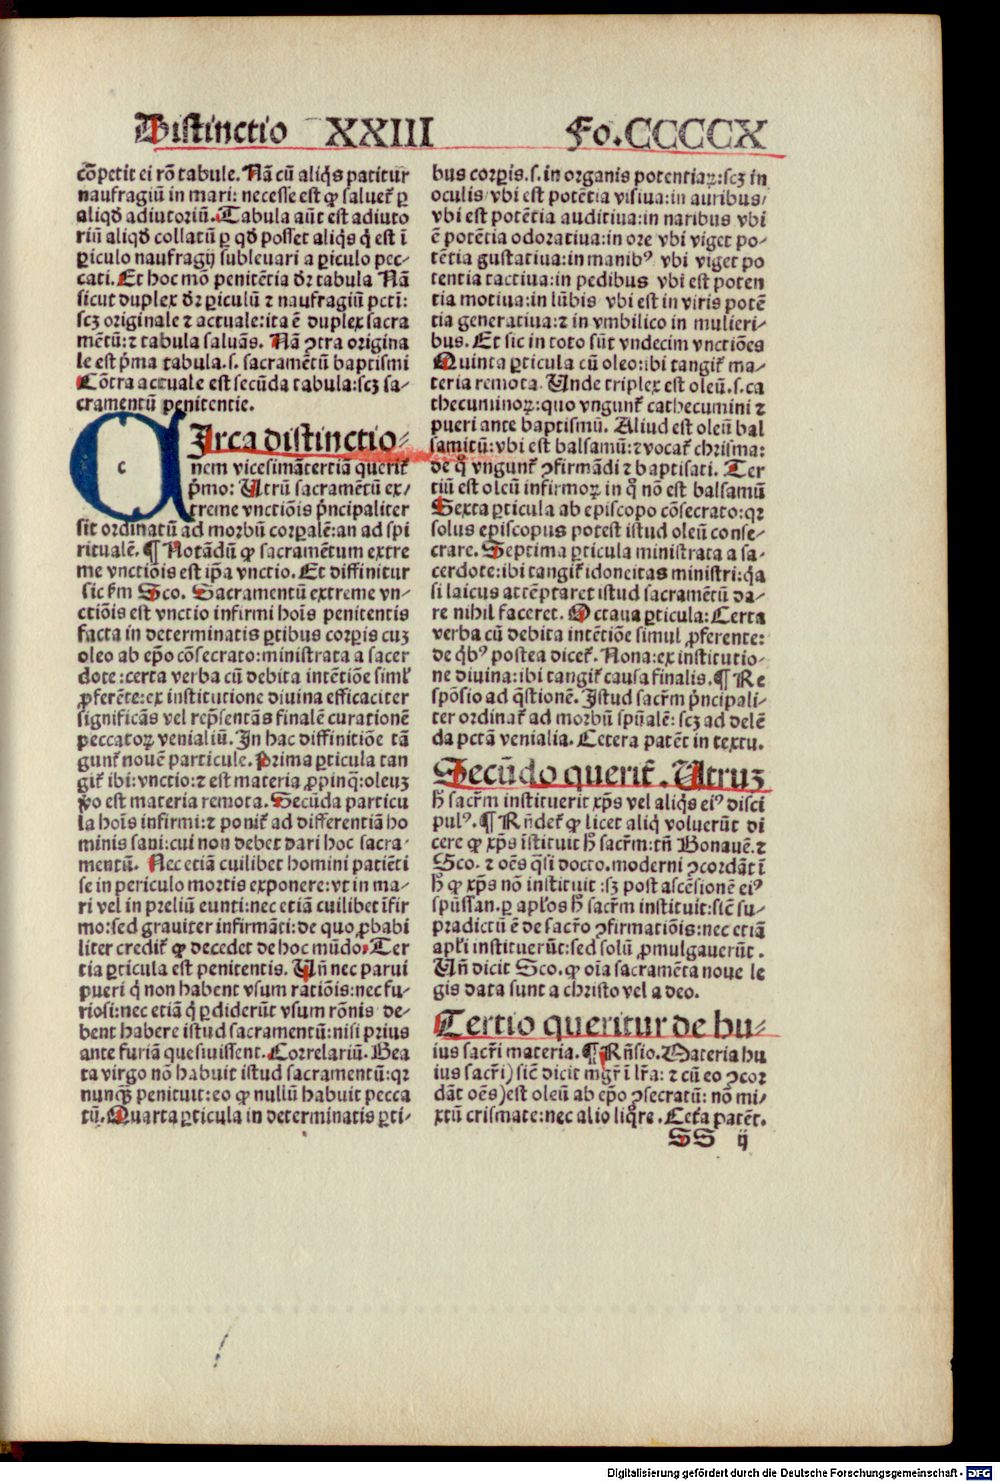 Distinctio XXIII Fo.CCCCCX
cōpetit ei rōe tabule. Nā cū aliq̇s patitur
naufragiū in mari: necesse est ꝙ saluet̃ ꝑ
aliqď adiutoriū. Tabula aūt est adiuto
riū aliqď collatū ꝑ qď posset aliq̇s q̇ est ī
ꝑiculo naufragij subleuari a ꝑiculo pec⸗
cati. Et hoc mō penitētia ďr tabula Nā
sicut duplex ďr ꝑiculū ⁊ naufragiū pctī:
scꝫ originale ⁊ actuale: ita ē duplex sacra
mētū: ⁊ tabula saluās. Nā ꝯtra origina
le est p̄ma tabula. s. sacramētū baptismi
Cōtra actuale est secūda tabula: scꝫ sa⸗
cramentū penitentie.
c
CIrca distinctio⸗
nem vicesimātertiā querit̃
p̄mo: Utrū sacramētū ex⸗
treme vnctiōis p̄ncipaliter
sit ordinatū ad morbū corꝑalē: an ad spi
ritualē. ¶ Notādū ꝙ sacramētum extre
me vnctiōis est ip̄a vnctio. Et diffinitur
sic ẜm Sco. Sacramentū extreme vn⸗
ctiōis est vnctio infirmi hoīs penitentis
facta in determinatis ꝑtibus corꝑis cuꝫ
oleo ab ep̄o cōsecrato: ministrata a sacer
dote: certa verba cū debita intētiōe siml̕
ꝓferēte: ex institutione diuina efficaciter
significās vel rep̄sentās finalē curationē
peccatoꝝ venialiū. In hac diffinitiōe tā
gunt̃ nouē particule. Prima ꝑticula tan
git̃ ibi: vnctio: ⁊ est materia ꝓpinq̄: oleuꝫ
ꝟo est materia remota. Secūda particu
la hoīs infirmi: ⁊ ponit̃ ad differentiā ho
minis sani: cui non debet dari hoc sacra⸗
mentū. Nec etiā cuilibet homini patiēti
se in periculo mortis exponere: vt in ma⸗
ri vel in preliū eunti: nec etiā cuilibet īfir
mo: sed grauiter infirmāti: de quo ꝓbabi
liter credit̃ ꝙ decedet de hoc mūdo. Ter
tia ꝑticula est penitentis. Uñ nec parui
pueri q̇ non habent vsum ratiōis: nec fu⸗
riosi: nec etiā q̇ ꝑdiderūt vsum rōnis de⸗
bent habere istud sacramentū: nisi prius
ante furiā quesiuissent. Correlariū. Bea
ta virgo nō habuit istud sacramentū: qꝛ
nunqꝫ penituit: eo ꝙ nullū habuit pecca
tū. Quarta ꝑticula in determinatis ꝑti⸗
bus corꝑis. s. in organis potentiaꝝ: scꝫ in
oculis/ vbi est potētia visiua: in auribus/
vbi est potētia auditiua: in naribus vbi
ē potētia odoratiua: in ore vbi viget po⸗
tētia gustatiua: in manibꝰ vbi viget po
tentia tactiua: in pedibus vbi est poten
tia motiua: in lūbis vbi est in viris potē
tia generatiua: ⁊ in vmbilico in mulieri⸗
bus. Et sic in toto sūt vndecim vnctiōes
Quinta ꝑticula cū oleo: ibi tangit̃ ma⸗
teria remota. Unde triplex est oleū. s. ca
thecuminoꝝ: quo vngunt̃ cathecumini ⁊
pueri ante baptismū. Aliud est oleū bal
samitū: vbi est balsamū: ⁊ vocat̃ chrisma:
de q̊ vngunt̃ ꝯfirmādi ⁊ baptisati. Ter
tiū est oleū infirmoꝝ in q̊ nō est balsamū
Sexta ꝑticula ab episcopo cōsecrato: qꝛ
solus episcopus potest istud oleū conse⸗
crare. Septima ꝑticula ministrata a sa⸗
cerdote: ibi tangit̃ idoneitas ministri: q̄a
si laicus attēptaret istud sacramētū da⸗
re nihil faceret. Octaua ꝑticula: Certa
verba cū debita intētiōe simul ꝓferente:
de q̇bꝰ postea dicet̃. Nona: ex institutio⸗
ne diuina: ibi tangit̃ causa finalis. ¶ Re
spōsio ad q̄stionē. Istud sacr̄m p̄ncipali⸗
ter ordinat̃ ad morbū sp̄ualē: scꝫ ad delē
da pctā venialia. Cetera patēt in textu.
Secūdo querit̃. Utruꝫ
h̄ sacr̄m instituerit xp̄s vel aliq̇s eiꝰ disci
pulꝰ. ¶ Rñdet̃ ꝙ licet aliq̇ voluerūt di
cere ꝙ xp̄s īstituit h̄ sacr̄m: tñ Bonauē. ⁊
Sco. ⁊ oēs q̄si docto. moderni ꝯcordāt ī
h̄ ꝙ xp̄s nō instituit: sꝫ post ascēsionē eiꝰ
sp̄ūssan. ꝑ apl̄os h̄ sacr̄m instituit: sic̄ su⸗
pradictū ē de sacr̄o ꝯfirmatiōis: nec etiā
apl̄i instituerūt: sed solū ꝓmulgauerūt.
Uñ dicit Sco. ꝙ oīa sacramēta noue le
gis data sunt a christo vel a deo.
Tertio queritur de hu⸗
ius sacr̄i materia. ¶ Rñsio. Materia hu
ius sacr̄i) sic̄ dicit mgr̄ ī lr̄a: ⁊ cū eo ꝯcor
dāt oēs) est oleū ab ep̄o ꝯsecratū: nō mi⸗
xtū crismate: nec alio liq̊re. Cet̃a patēt.
SS ij
Digitalisierung gefördert durch die Deutsche Forschungsgemeinschaft - DFG